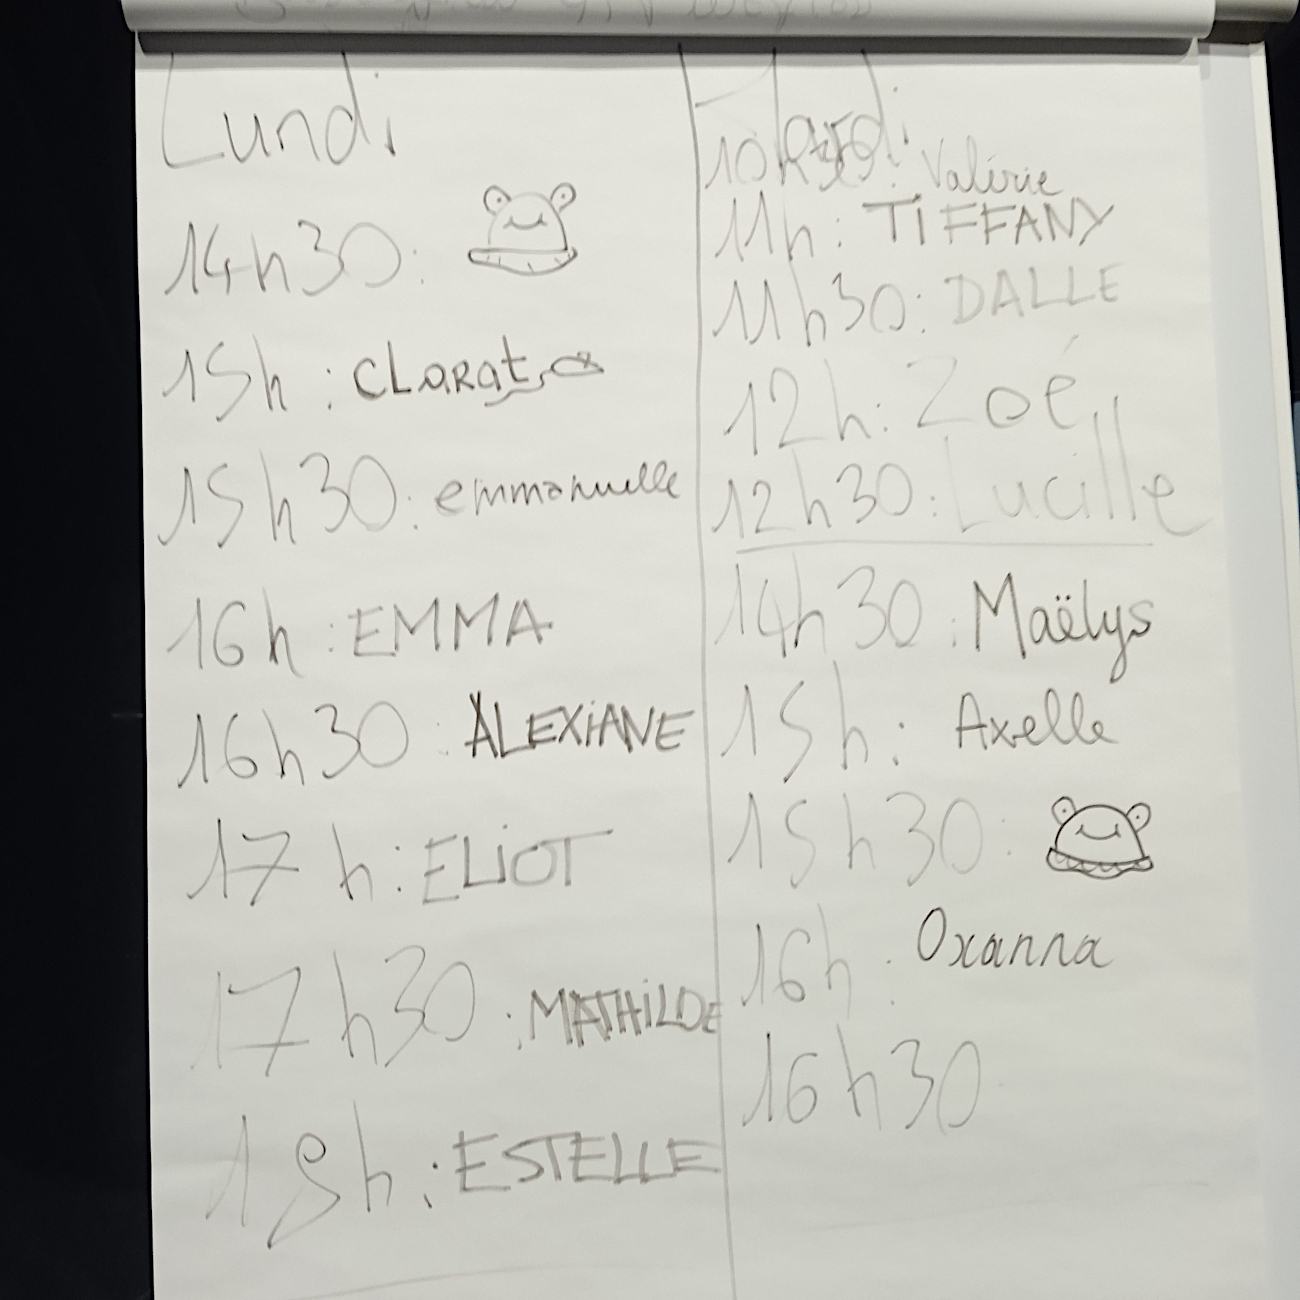 Lundi
14h30 :
15h : CLARAt
15h30 : emmanuelle
16h : EMMA
16h30 : ALEXiANE
17h : ELiOT
17h30 : MATHiLDE
18h : ESTELLE
Mardi
10h30 : Valérie
11h : TiFFANY
11h30 : DALLE
12h : Zoé
12h30 : Lucille
14h30 : Maëlys
15h : Axelle
15h30 :
16h : Oxanna
16h30